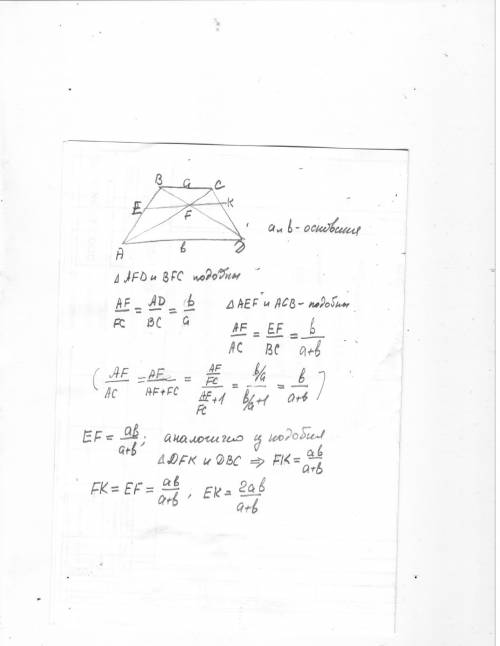 B a C
E F K
A b D
a и b - основания
△ AFD и BFC подобны
AF/FC = AD/BC = b/a
△AEF и ACB - подобны
AF/AC = EF/BC = b/(a+b)
(AF/AC = AF/(AF+FC) = (AF/FC)/(AF/FC+1) = (b/a)/(b/a+1) = b/(a+b))
EF = ab/(a+b); аналогично из подобия
△DFK и DBC ⇒ FK = ab/(a+b)
FK = EF = ab/(a+b), EK = 2ab/(a+b)